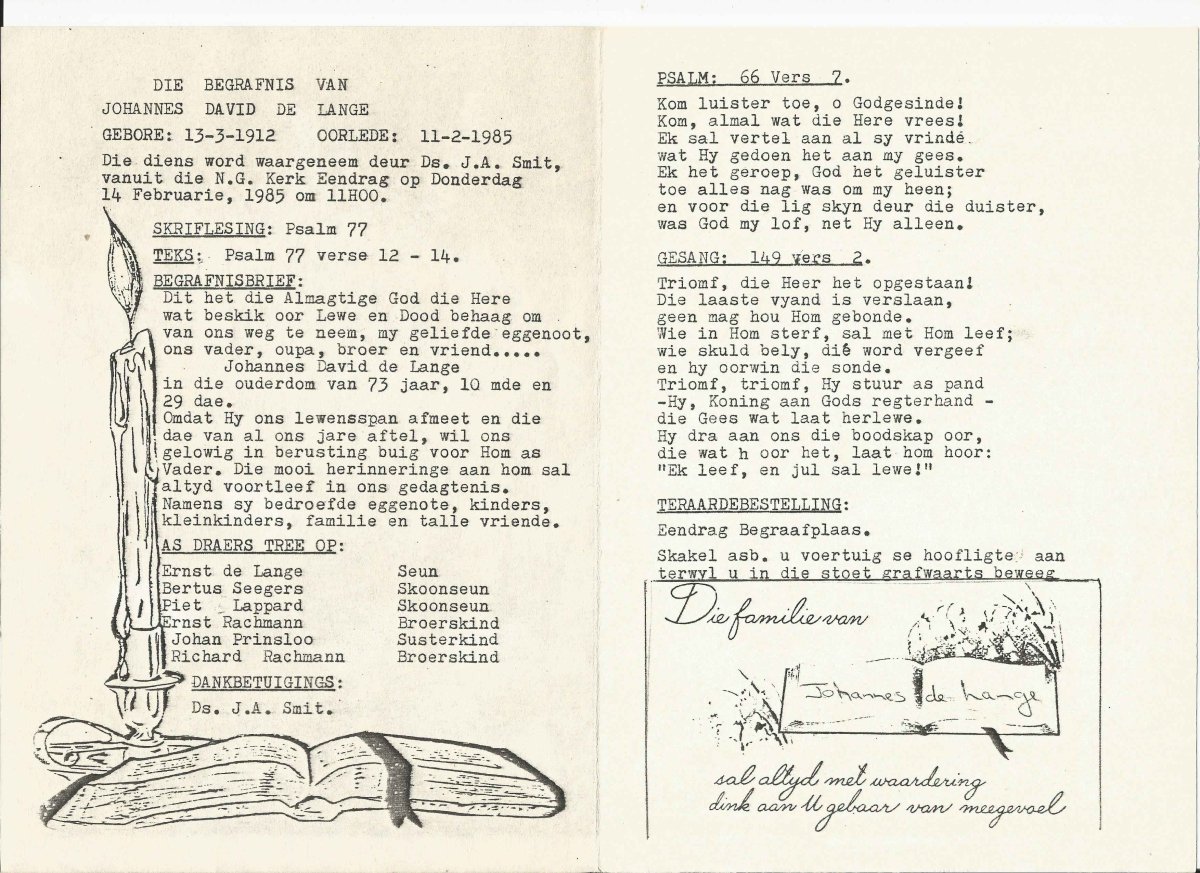 DIE BEGRAFNIS VAN
JOHANNES DAVID DE LANGE
GEBORE: 13-3-1912 OORLEDE: 11-2-1985
Die diens word waargeneem deur Ds. J.A. Smit,
vanuit die N.G. Kerk Eendrag op Donderdag
14 Februarie, 1985 om 11H00.
SKRIFLESING: Psalm 77
TEKS: Psalm 77 verse 12 - 14.
BEGRAFNISBRIEF:
Dit het die Almagtige God die Here
wat beskik oor Lewe en Dood behaag om
van ons weg te neem, my geliefde eggenoot,
ons vader, oupa, broer en vriend.....
Johannes David de Lange
in die ouderdom van 73 jaar, 10 mde en
29 dae.
Omdat Hy ons lewensspan afmeet en die
dae van al ons jare aftel, wil ons
gelowig in berusting buig voor Hom as
Vader. Die mooi herinneringe aan hom sal
altyd voortleef in ons gedagtenis.
Namens sy bedroefde eggenote, kinders,
kleinkinders, familie en talle vriende.
AS DRAERS TREE OP:
Ernst de Lange Seun
Bertus Seegers Skoonseun
Piet Lappard Skoonseun
Ernst Rachmann Broerskind
Johan Prinsloo Susterkind
Richard Rachmann Broerskind
DANKBETUIGINGS:
Ds. J.A. Smit.
PSALM: 66 Vers 7.
Kom luister toe, o Godgesinde!
Kom, almal wat die Here vrees!
Ek sal vertel aan al sy vrindé
wat Hy gedoen het aan my gees.
Ek het geroep, God het geluister
toe alles nag was om my heen;
en voor die lig skyn deur die duister,
was God my lof, net Hy alleen.
GESANG: 149 vers 2.
Triomf, die Heer het opgestaan!
Die laaste vyand is verslaan,
geen mag hou Hom gebonde.
Wie in Hom sterf, sal met Hom leef;
wie skuld bely, dié word vergeef
en hy oorwin die sonde.
Triomf, triomf, Hy stuur as pand
-Hy, Koning aan Gods regterhand -
die Gees wat laat herlewe.
Hy dra aan ons die boodskap oor,
die wat h oor het, laat hom hoor:
"Ek leef, en jul sal lewe!"
TERAARDEBESTELLING:
Eendrag Begraafplaas.
Skakel asb. u voertuig se hoofligte aan
terwyl u in die stoet grafwaarts beweeg
Die familie van
Johannes de Lange
sal altyd met waardering
dink aan U gebaar van meegevoel